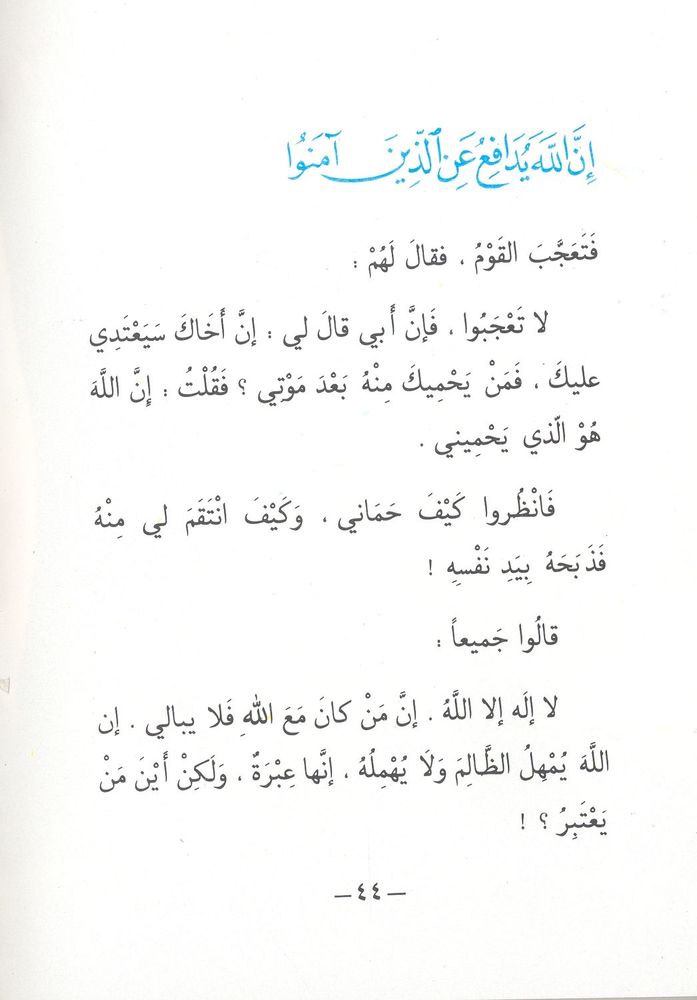 إِنَّ اللَّهَ يُدَافِعُ عَنِ الَّذِينَ آمَنُوا
فَتَعَجَّبَ القَوْمُ ، فقالَ لَهُمْ :
لا تَعْجَبُوا ، فَإِنَّ أَبي قالَ لي : إنَّ أَخَاكَ سَيَعْتَدِي
عليكَ ، فَمَنْ يَحْمِيكَ مِنْهُ بَعْدَ مَوْتِي ؟ فَقُلْتُ : إِنَّ اللَّهَ
هُوَْ الّذي يَحْمِيني .
فَانْظُروا كَيْفَ حَمَاني ، وَكَيْفَ انْتَقَمَ لي مِنْهُ
فَذَبَحَهُ بِيَدِ نَفْسِهِ !
قالُوا جَميعاً :
لا إلَه إلا اللَّهُ . إنَّ مَنْ كانَ مَعَ اللهِ فَلا يبالي . إن
اللَّهَ يُمْهِلُ الظَّالِمَ وَلَا يُهْمِلُهُ ، إنَّها عِبْرَةٌ ، وَلَكِنْ أَيْنَ مَنْ
يَعْتَبِرُ ؟ !
— ٤٤ —